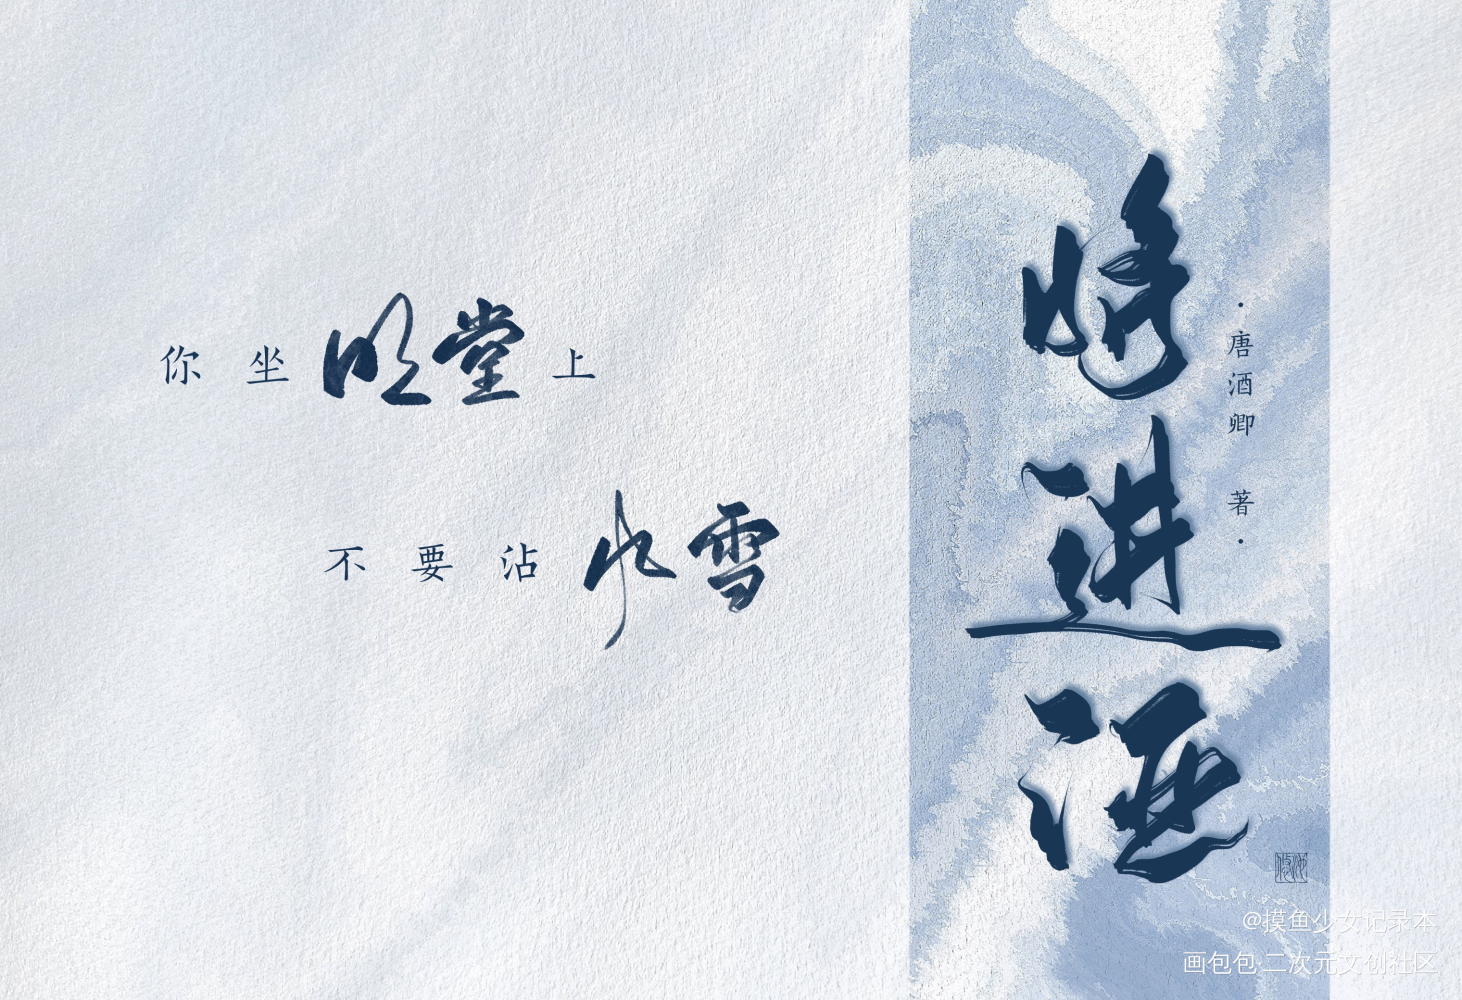 你坐明堂上
不要沾风雪
将进酒
·唐酒卿 著·
@摸鱼少女记录本
画包包·二次元文创社区